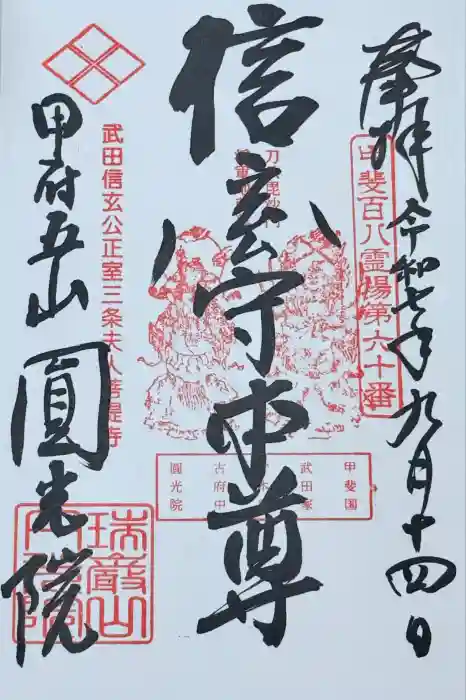 奉拝 令和七年九月十四日
甲斐百八霊場第六十番
信玄守本尊
甲斐国
武田家
古府中
圓光院
武田信玄公正室三条夫人菩提寺
甲府五山 圓光院
瑞巌山